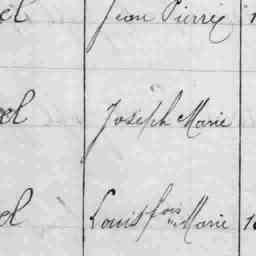 el Jean Pierre 1
el Joseph Marie
el Louis fois Marie 18